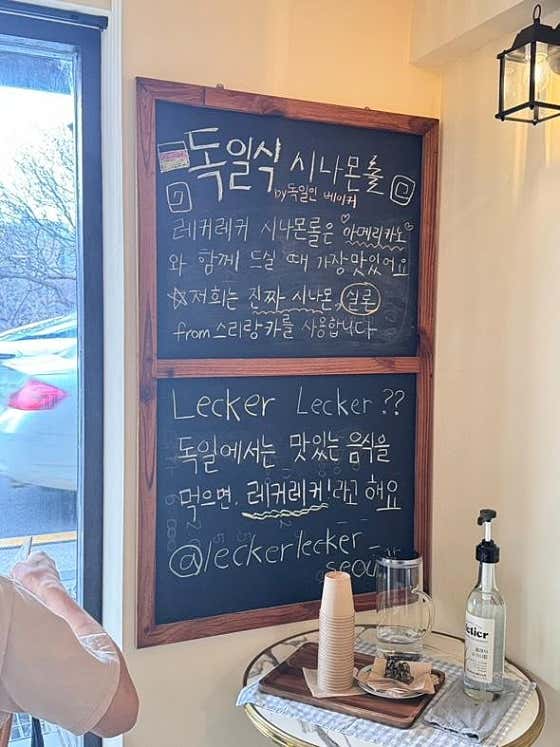 독일식 시나몬롤
by독일인 베이커
레커레커 시나몬롤은 아메리카노
와 함께 드실 때 가장맛있어요
☆저희는 진짜 시나몬, 실론
from스리랑카를 사용합니다
Lecker Lecker ??
독일에서는 맛있는 음식을
먹으면, 레커레커!라고 해요
@leckerlecker
seoul